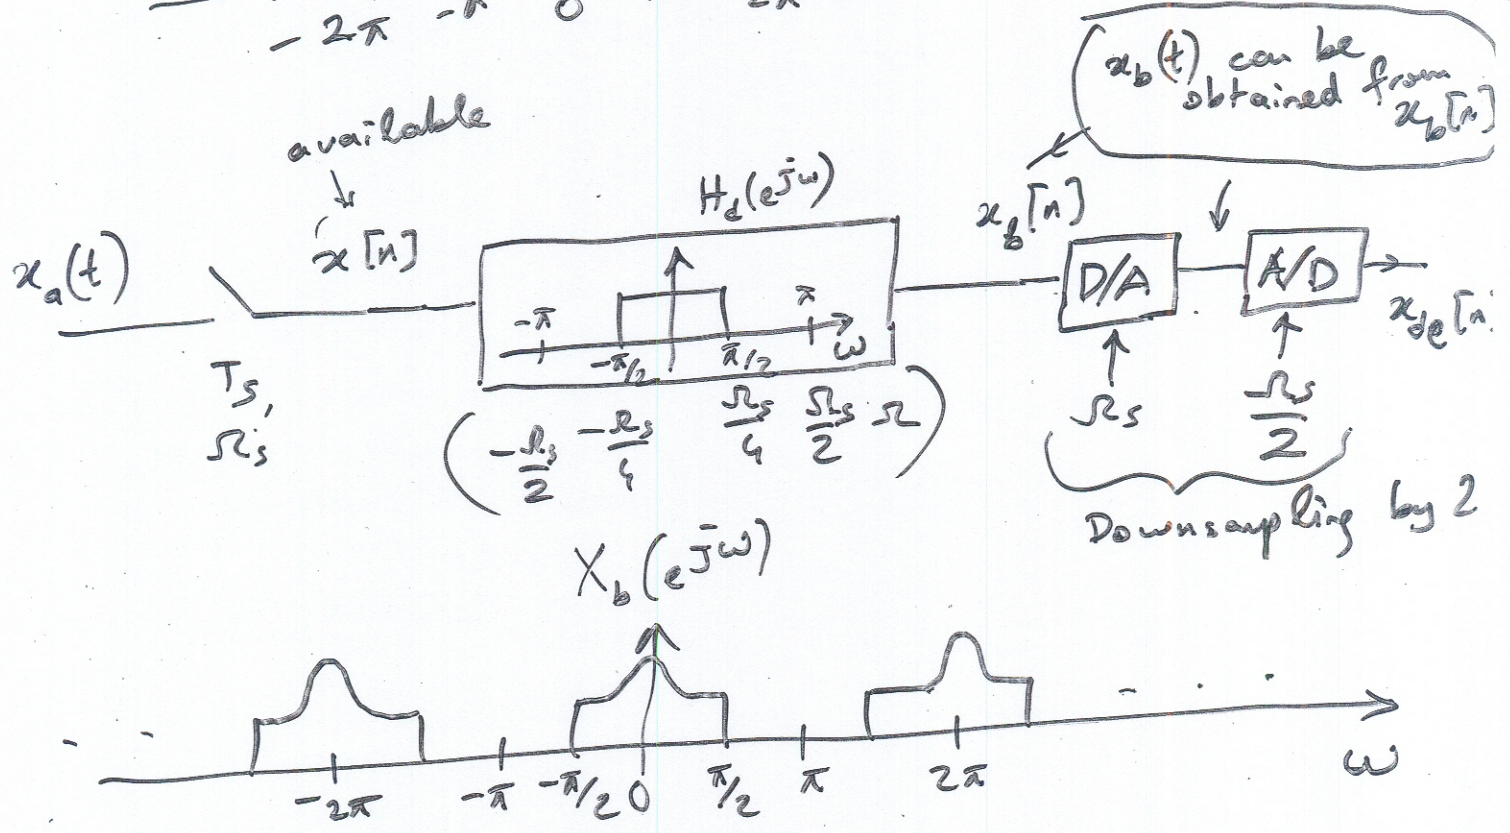 - 2π -π 0 2π
x_b(t) can be
obtained from
x_b[n]
available
H_d(e^jω)
x_a(t)
x[n]
x_b[n]
D/A
A/D
x_de[n
-π
-π/2
π/2
π
ω
T_s,
Ω_s
(-Ω_s/2 -Ω_s/4 Ω_s/4 Ω_s/2 Ω)
Ω_s
Ω_s/2
Downsampling by 2
X_b(e^jω)
-2π -π -π/2 0 π/2 π 2π ω